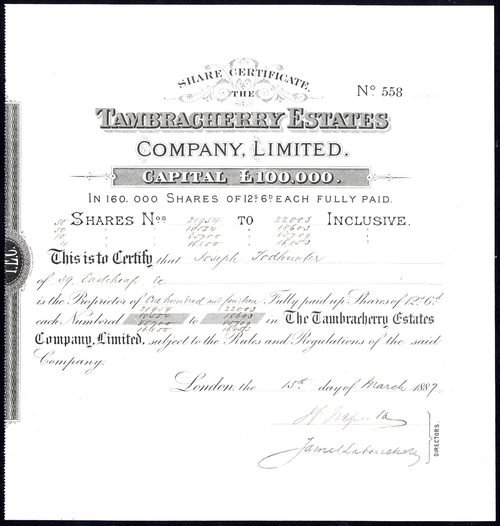 SHARE CERTIFICATE.
Nº 558
THE
TAMBRACHERRY ESTATES
COMPANY, LIMITED.
CAPITAL £100,000.
IN 160.000 SHARES OF 12S 6D EACH FULLY PAID.
SHARES Nos 21954 TO 22003 INCLUSIVE.
50 18554 18603
10 85700 85709
4 16450 16453
This is to Certify that Joseph Todhunter
of 39. Eastcheap
is the Proprietor of One hundred and fourteen Fully paid up Shares of 12s 6d
21954 22003
each Numbered 18554 to 18603 in The Tambracherry Estates
85700 85709
Company, Limited, subject to the Rules and Regulations of the said
Company.
London, the 15th day of March 1887.
James Labouchere
DIRECTORS.